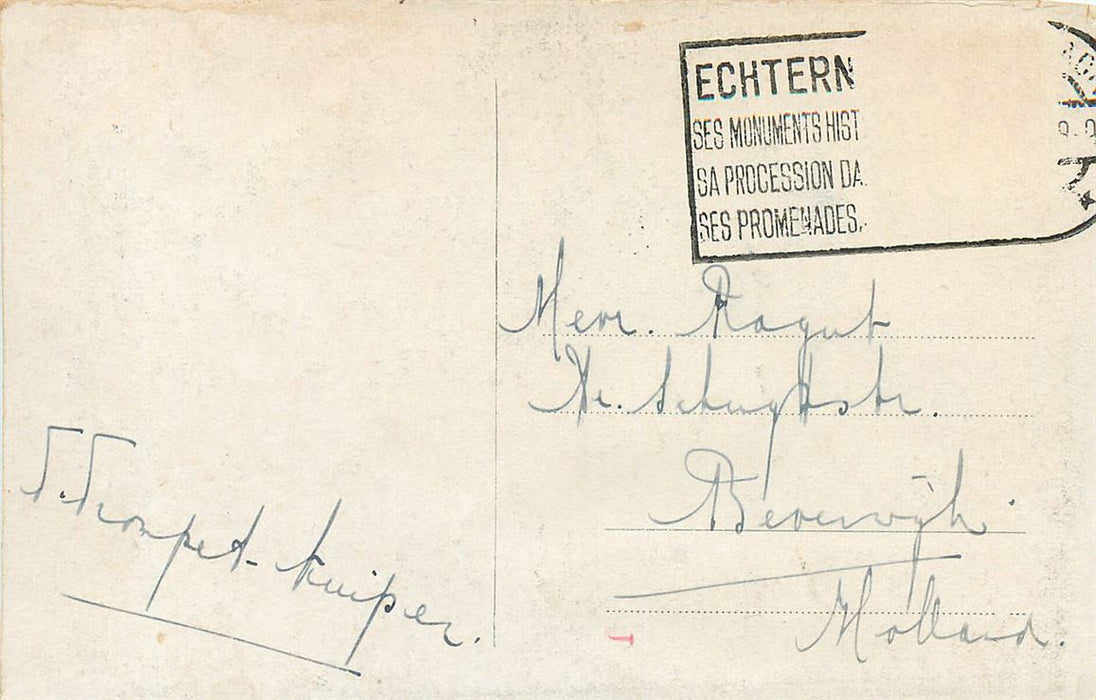 ECHTERN
SES MONUMENTS HIST
SA PROCESSION DA
SES PROMENADES.
Mevr. Ragut
Dr. Schuytstr.
Beverwijk.
Holland.
T. Trompet-Kuiper.
T